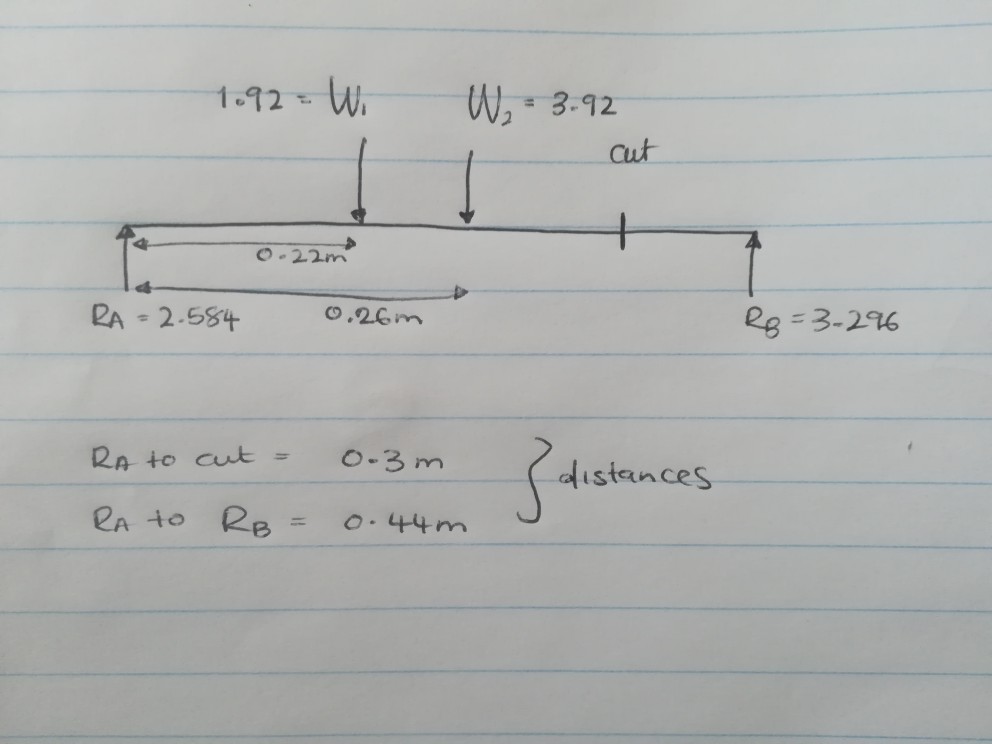 1.92 = W₁
W₂ = 3.92
cut
0.22m
0.26m
RA = 2.584
RB = 3.296
RA to cut = 0.3 m
RA to RB = 0.44m
distances